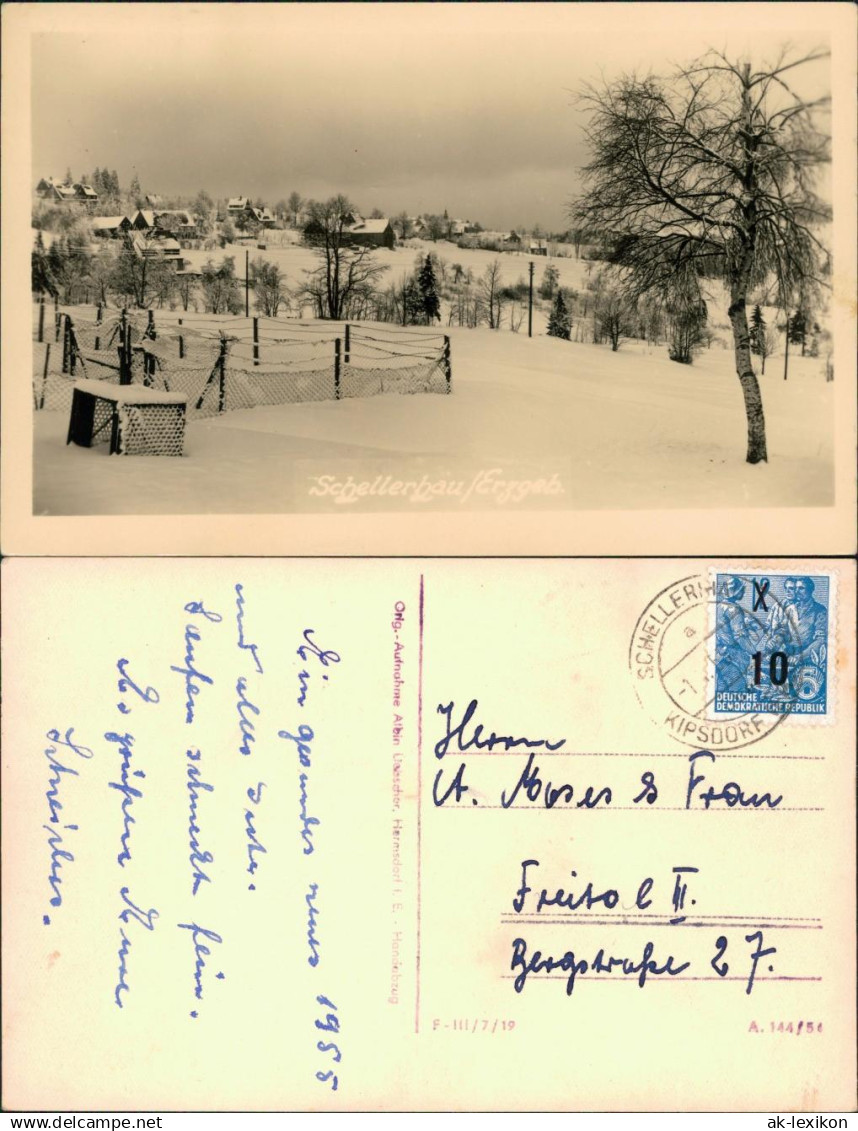 Schellerhau/Erzgeb.
Ein gesundes neues 1955
und alles Gute.
Laufen schmeckt fein.
Es grüßen Eure
Orig.-Aufnahme Albin Uebscher, Hermsdorf i. E. - Handabzug
SCHELLERHAU
KIPSDORF
a
X
10
DEUTSCHE
DEMOKRATISCHE REPUBLIK
Herrn
A. Moses & Frau
Freital II.
Bergstraße 27.
F-III/7/19
A. 144/54
ak-lexikon